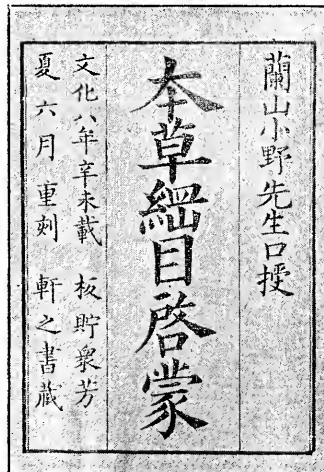 蘭山小野先生口授
本草綱目啓蒙
文化八年辛未載 板貯衆芳
夏六月重刻 軒之書藏